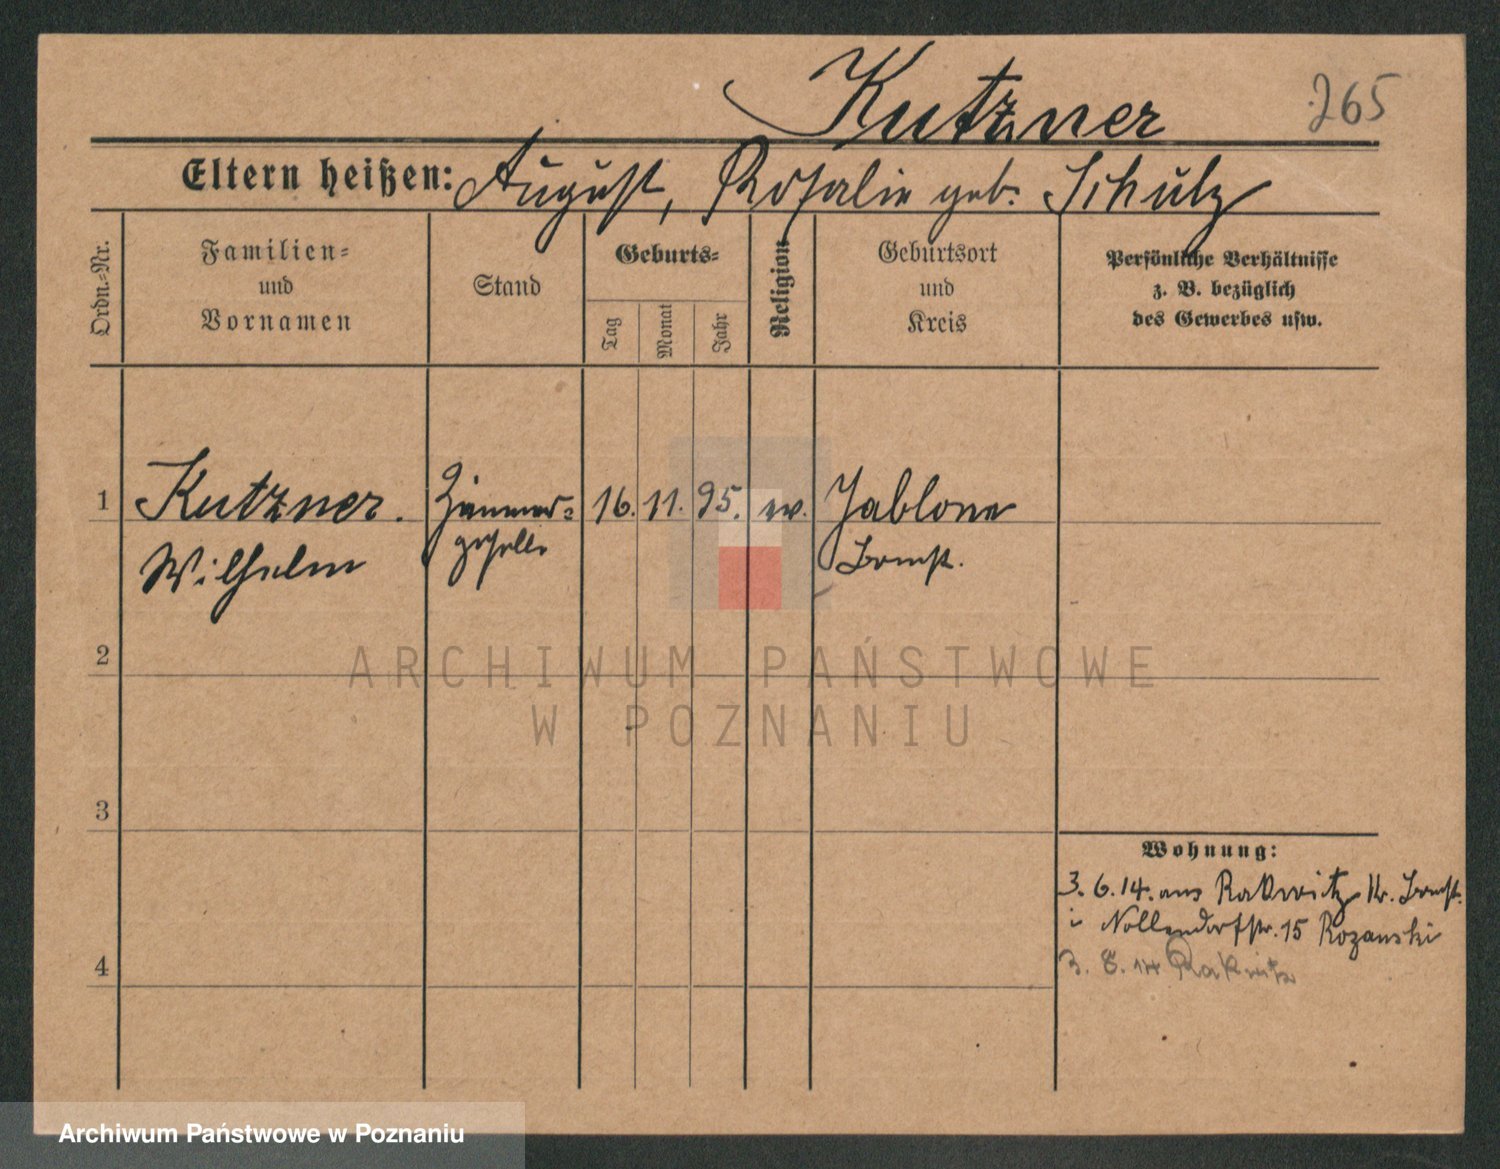 Kutzner
265
Eltern heißen: August, Rosalie geb. Schulz
Ordn.-Nr.
Familien-
und
Vornamen
Stand
Geburts-
Tag
Monat
Jahr
Religion
Geburtsort
und
Kreis
Persönliche Verhältnisse
z. B. bezüglich
des Gewerbes usw.
1 Kutzner. Zimmer- 16. 11. 95. ev. Jablone
Wilhelm geselle Bomst.
2
ARCHIWUM PAŃSTWOWE
W POZNANIU
3
Wohnung:
3. 6. 14. aus Rakwitz Kr. Bomst.
i Nollendorfstr. 15 Rozanski
3. 8. 14 Rakwitz
4
Archiwum Państwowe w Poznaniu